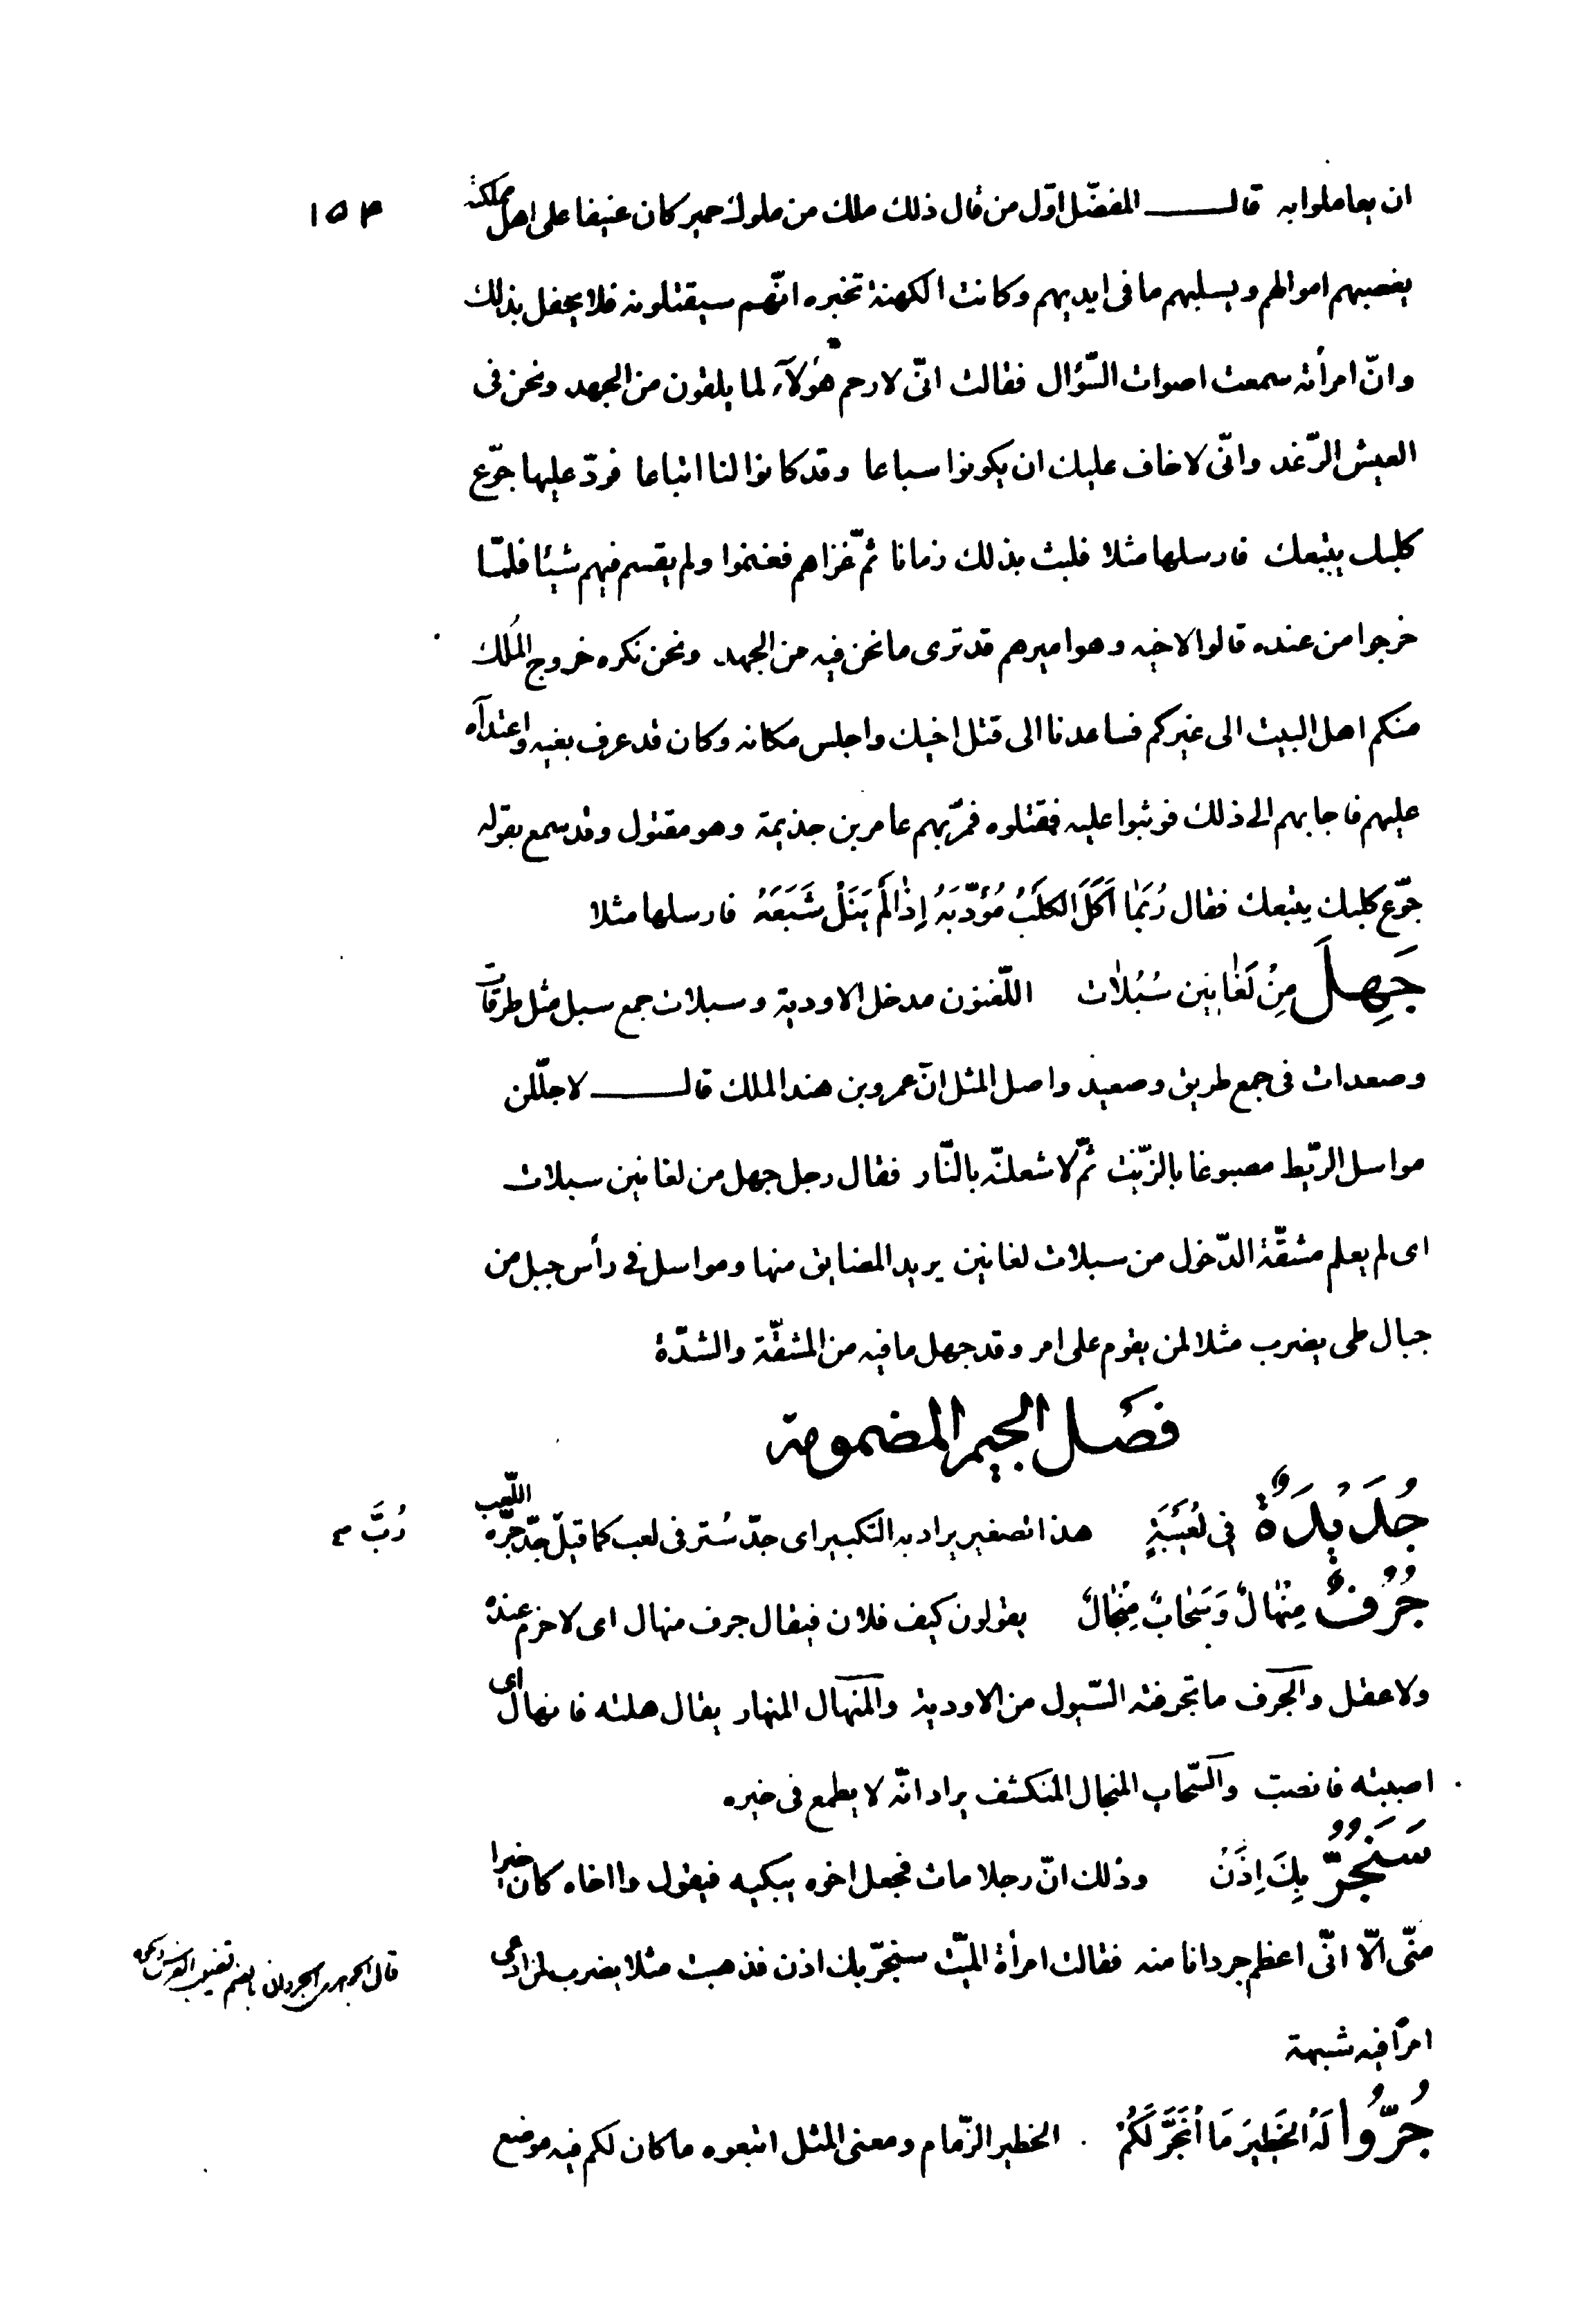 ان يعاملوا به قالـــــ المفضّل اوّل من قال ذلك ملك من ملوك حمير كان عنيفا على اهل مملكته
١٥٣
يغصبهم اموالهم ويسلبهم ما فى ايديهم وكانت الكهنة تخبره انّهم سيقتلونه فلا يحفل بذلك
وانّ امرأته سمعت اصوات السّؤال فقالت انّى لارحم هؤلآء لما يلقون من الجهد ونحن فى
العيش الرّغد وانّى لاخاف عليك ان يكونوا سباعا وقد كانوا لنا اتباعا فردّ عليها جوّع
كلبك يتبعك فارسلها مثلا فلبث بذلك زمانا ثمّ غزاهم فغنموا ولم يقسم فيهم شيئا فلمّا
خرجوا من عنده قالوا لاخيه وهو اميرهم قد ترى ما نحن فيه من الجهد ونحن نكره خروج المُلك
منكم اهل البيت الى غيركم فساعدنا الى قتل اخيك واجلس مكانه وكان قد عرف بغيه واعتدآه
عليهم فاجابهم الى ذلك فوثبوا عليه فقتلوه فمرّ بهم عامر بن جذيمة وهو مقتول وقد سمع بقوله
جوّع كلبك يتبعك فقال رُبَمٰا اَكَلَ الكَلبُ مُؤَدّبَهُ اِذٰا لَم يَنَلْ شَبَعَهُ فارسلها مثلا
جَهِلَ مِنْ لَغٰانِين سُبُلاٰت اللّغنون مدخل الاودية وسبلات جمع سبل مثل طرقات
وصعدات فى جمع طريق وصعيد واصل المثل انّ عمرو بن هند الملك قالـــــ لاجلّلن
مواسل الرّيط مصبوغا بالزّيت ثمّ لاشعلنّه بالنّار فقال رجل جهل من لغانين سبلات
اى لم يعلم مشقّة الدّخول من سبلات لغانين يريد المضايق منها ومواسل فى رأس جبل من
جبال طى يضرب مثلا لمن يقوم على امر وقد جهل ما فيه من المشقّة والشدّة
فصل الجيم المضمومة
جُدَيْدَةٌ فى لُعَيْبَةٍ هذا تصغير يراد به التكبير اى جدّ سُتر فى لعب كما قيل جدّ جرّه اللّعب
رُبَّ
جُرُفٌ مِنْهٰالٌ وَسَحٰابٌ مِنْجٰالٌ يقولون كيف فلان فيقال جرف منهال اى لا حزم عنده
ولا عقل والجرف ما تجرفته السّيول من الاودية والمنهال المنهار يقال هلته فانهال اى
اصببته فانصبّ والسّحاب المنجال المنكشف يراد انّه لا يطمع فى خيره
سَنَجُرُّ بِكَ اِذَنْ وذلك انّ رجلا مات فجعل اخوه يبكيه فيقول وا اخاه كان خيرا
منّى الّا انّى اعظم جردانا منه فقالت امرأة الميّت سنجرّ بك اذن فذهبت مثلا يضرب لمن ادعى
قال الجوهرى الجردان بالضم قضيب الفرس وغيره
امرًا فيه شبهة
جُرّوُا لَهُ الخَطِيرَ مَا انْجَرَّ لَكُمْ الخطير الزّمام ومعنى المثل اتبعوه ما كان لكم فيه موضع